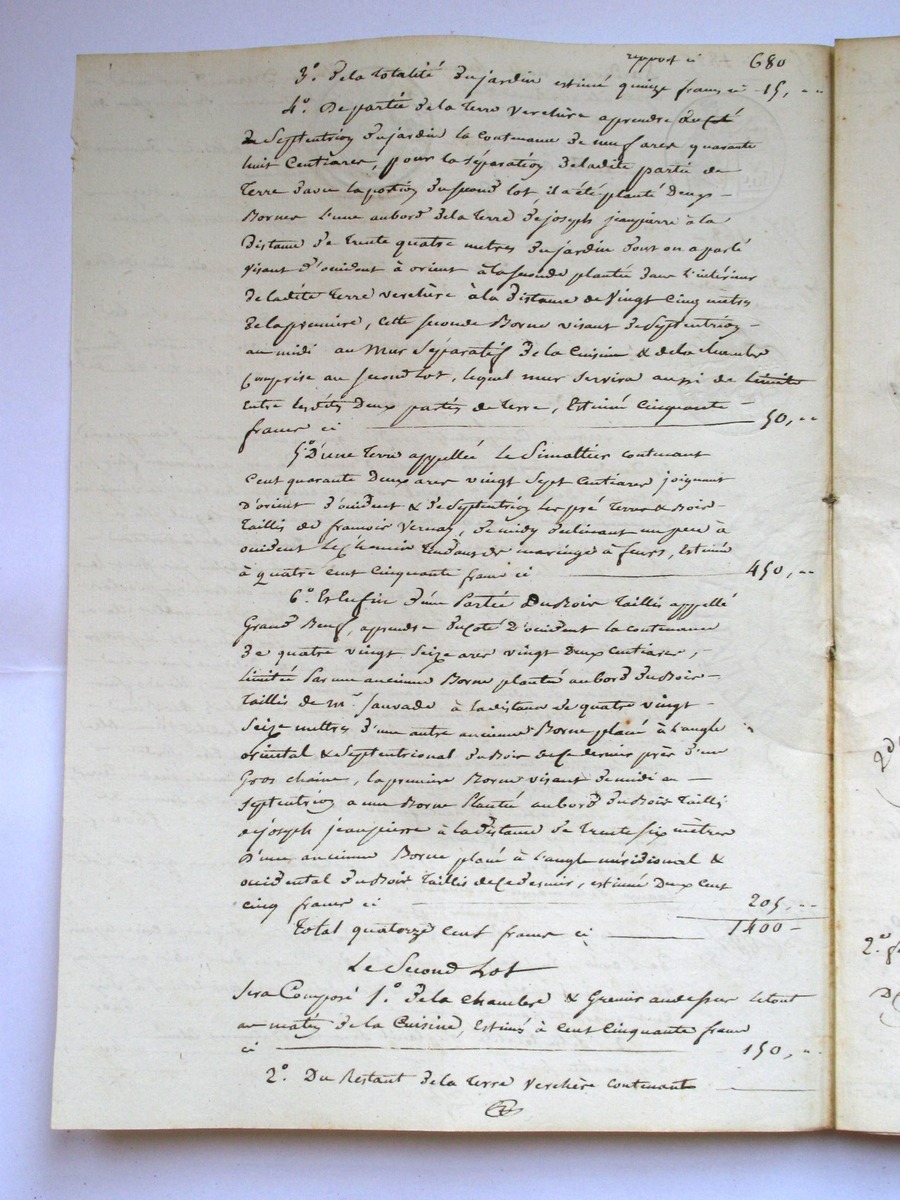 report ci 680
3°. de la totalité du jardin estimé quinze francs ci 15, ""
4°. De partie de la Terre verchère aprendre du Coté
de Septentrion du jardin la contenance de neuf ares quarante
huit Centiares, pour la séparation de ladite partie de
Terre d'avec la portion du second lot, il a été planté deux
Bornes l'une au bord de la Terre de joseph jeanpierre à la
distance de trente quatre metres du jardin dont on a parlé
visant d'occident à orient à la seconde plantée dans l'intérieur
de ladite Terre verchère à la distance de vingt cinq mètres
de la première, cette seconde Borne visant de Septentrion
au midi au Mur Séparatif de la Cuisine & de la chambre
Comprise au second Lot, lequel mur servira aussi de limite
entre lesdites deux parties de Terre, Estimé Cinquante
francs ci 50, ""
5° D'une Terre appellée Le Simottier contenant
Cent quarante deux ares vingt Sept Centiares joignant
D'orient d'occident & de Septentrion les pré Terre & Bois
Taillis de francois Vernay, de midy declinant un peu à
occident le Chemin tendant de maringe à feurs, Estimée
à quatre cent cinquante francs ci 450, ""
6°. Et Enfin d'une Partie Du Bois Taillis appellé
Grand Beuf, aprendre du coté d'occident la contenance
de quatre vingt seize ares vingt deux centiares,
limitée Par une ancienne Borne plantée au bord du Bois
Taillis de mr. Sauvade à la distance de quatre vingt
seize mettres d'une autre ancienne Borne placée à l'angle
oriental & septentrional du Bois de ce dernier près d'un
Gros chaine, la première Borne visant de midi au
septentrion a une Borne Plantée au bord du Bois Taillis
de joseph jeanpierre à la distance de trente six mètres
D'une ancienne Borne placée à l'angle méridional &
occidental du Bois Taillis de ce dernier, estimée Deux cent
cinq francs ci 205, ""
Total quatorze cent francs ci 1400
Le Second Lot
sera Composé 1°. de la chambre & Grenier au dessus le tout
au matin de la Cuisine, Estimés à cent Cinquante francs
ci 150, "
2°. Du Restant de la Terre verchère contenant